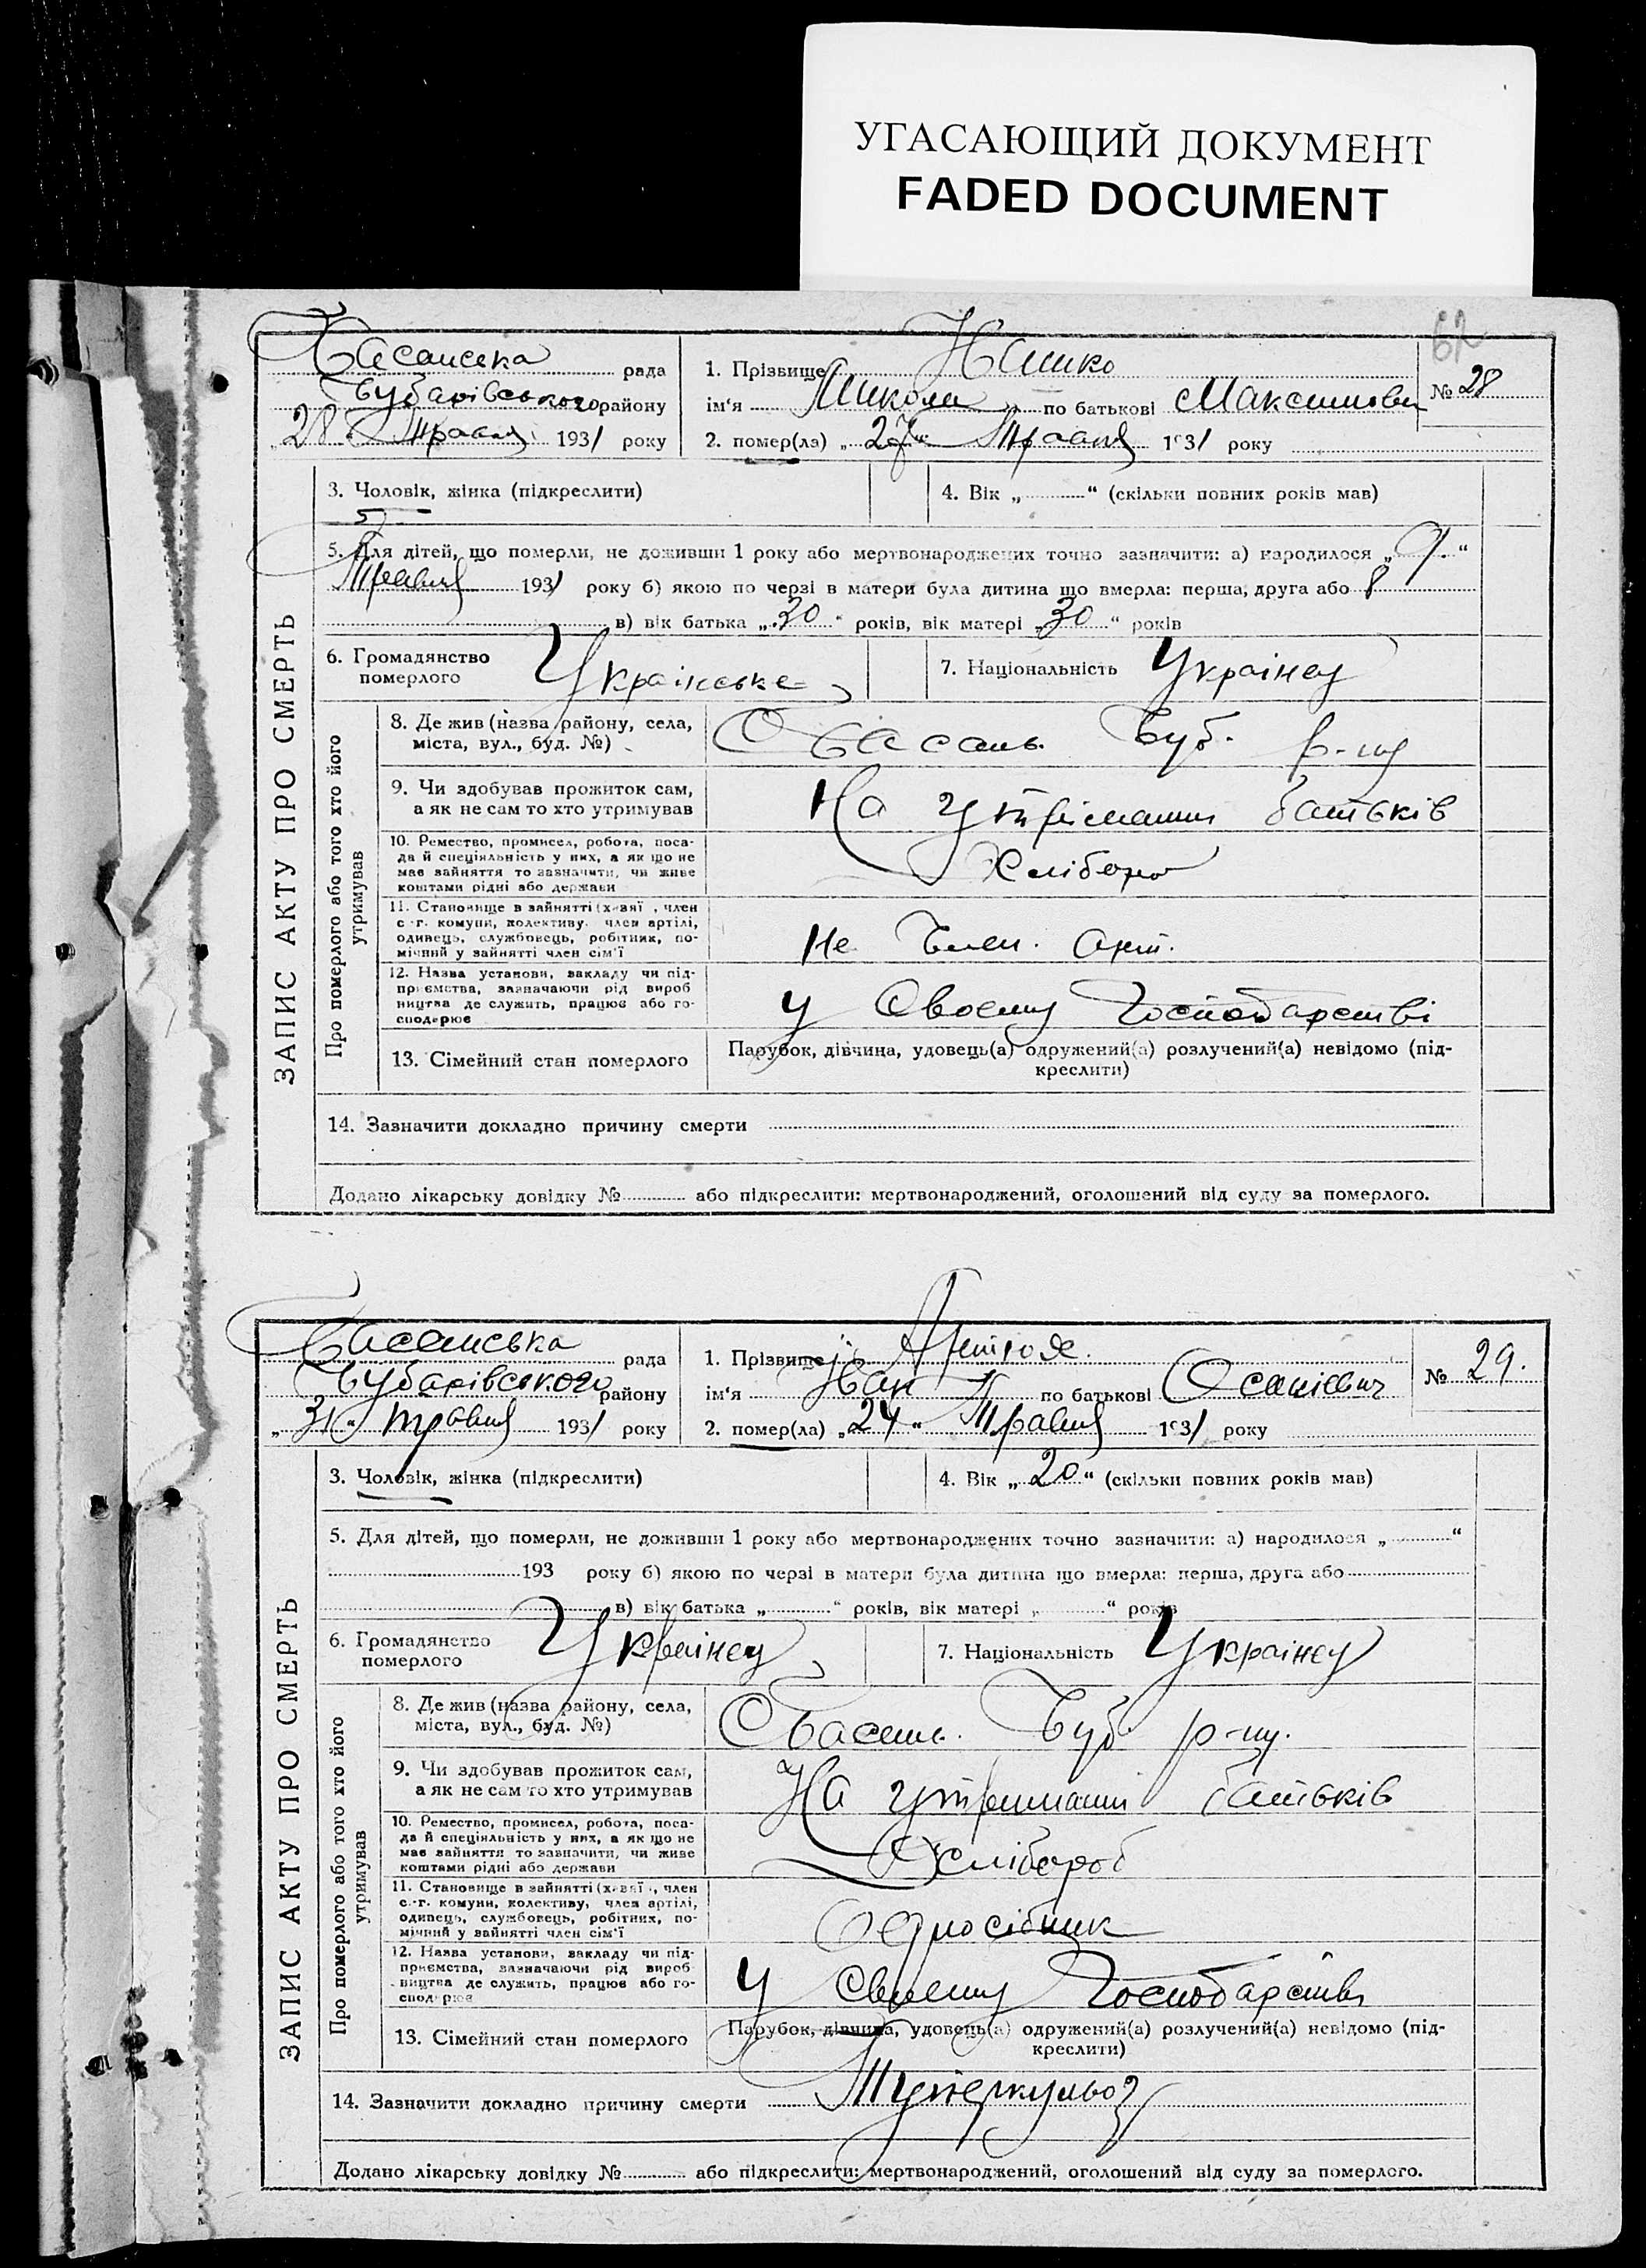 УГАСАЮЩИЙ ДОКУМЕНТ
FADED DOCUMENT
62
Басанська рада
Чубарівського району
„28“ Травня 1931 року
1. Прізвище
ім‘я Микола по батькові Максимович
2. помер(ла) „27“ Травня 1931 року
№ 28
ЗАПИС АКТУ ПРО СМЕРТЬ
3. Чоловік, жінка (підкреслити)
4. Вік „ “ (скільки повних років мав)
5. Для дітей, що померли, не доживши 1 року або мертвонароджених точно зазначити: а) народилося „9“
Травня 1931 року б) якою по черзі в матери була дитина що вмерла: перша, друга або
в) вік батька „30“ років, вік матері „30“ років
6. Громадянство
померлого
Українське
7. Національність Українец
Про померлого або того хто його
утримував
8. Де жив (назва району, села,
міста, вул., буд. №)
С Басань. Чуб. р-ну
9. Чи здобував прожиток сам,
а як не сам то хто утримував
На утріманни батьків
10. Ремество, промисел, робота, поса-
да й спеціяльність у них, а як що не
має зайняття то зазначити, чи живе
коштами рідні або держави
Хлібороб
11. Становище в зайнятті (хазяї , член
с.-г. комуни, колективу, член артілі,
одинець, службовець, робітник, по-
мічний у зайнятті член сім‘ї
Не Член. Арт.
12. Назва установи, закладу чи під-
приємства, зазначаючи рід вироб
ництва де служить, працює або го-
сподарює
У Своєму Господарстві
13. Сімейний стан померлого
Парубок, дівчина, удовець(а) одружений(а) розлучений(а) невідомо (під-
креслити)
14. Зазначити докладно причину смерти
Додано лікарську довідку № або підкреслити: мертвонароджений, оголошений від суду за померлого.
Басанська рада
Чубарівського району
„31“ травня 1931 року
1. Прізвище
ім‘я Іван по батькові
2. помер(ла) „24“ Травня 1931 року
№ 29.
ЗАПИС АКТУ ПРО СМЕРТЬ
3. Чоловік, жінка (підкреслити)
4. Вік „20“ (скільки повних років мав)
5. Для дітей, що померли, не доживши 1 року або мертвонароджених точно зазначити: а) народилося „ “
193 року б) якою по черзі в матери була дитина що вмерла: перша, друга або
в) вік батька „ “ років, вік матері „ “ років
6. Громадянство
померлого
Українец
7. Національність Українец
Про померлого або того хто його
утримував
8. Де жив (назва району, села,
міста, вул., буд. №)
С Басань. Чуб р-ну.
9. Чи здобував прожиток сам,
а як не сам то хто утримував
На утриманні батьків
10. Ремество, промисел, робота, поса-
да й спеціяльність у них, а як що не
має зайняття то зазначити, чи живе
коштами рідні або держави
Хлібороб
11. Становище в зайнятті (хазяї , член
с.-г. комуни, колективу, член артілі,
одинець, службовець, робітник, по-
мічний у зайнятті член сім‘ї
Односібник
12. Назва установи, закладу чи під-
приємства, зазначаючи рід вироб
ництва де служить, працює або го-
сподарює
У своєму Господарстві
13. Сімейний стан померлого
Парубок, дівчина, удовець(а) одружений(а) розлучений(а) невідомо (під-
креслити)
14. Зазначити докладно причину смерти Туберкульоз
Додано лікарську довідку № або підкреслити: мертвонароджений, оголошений від суду за померлого.